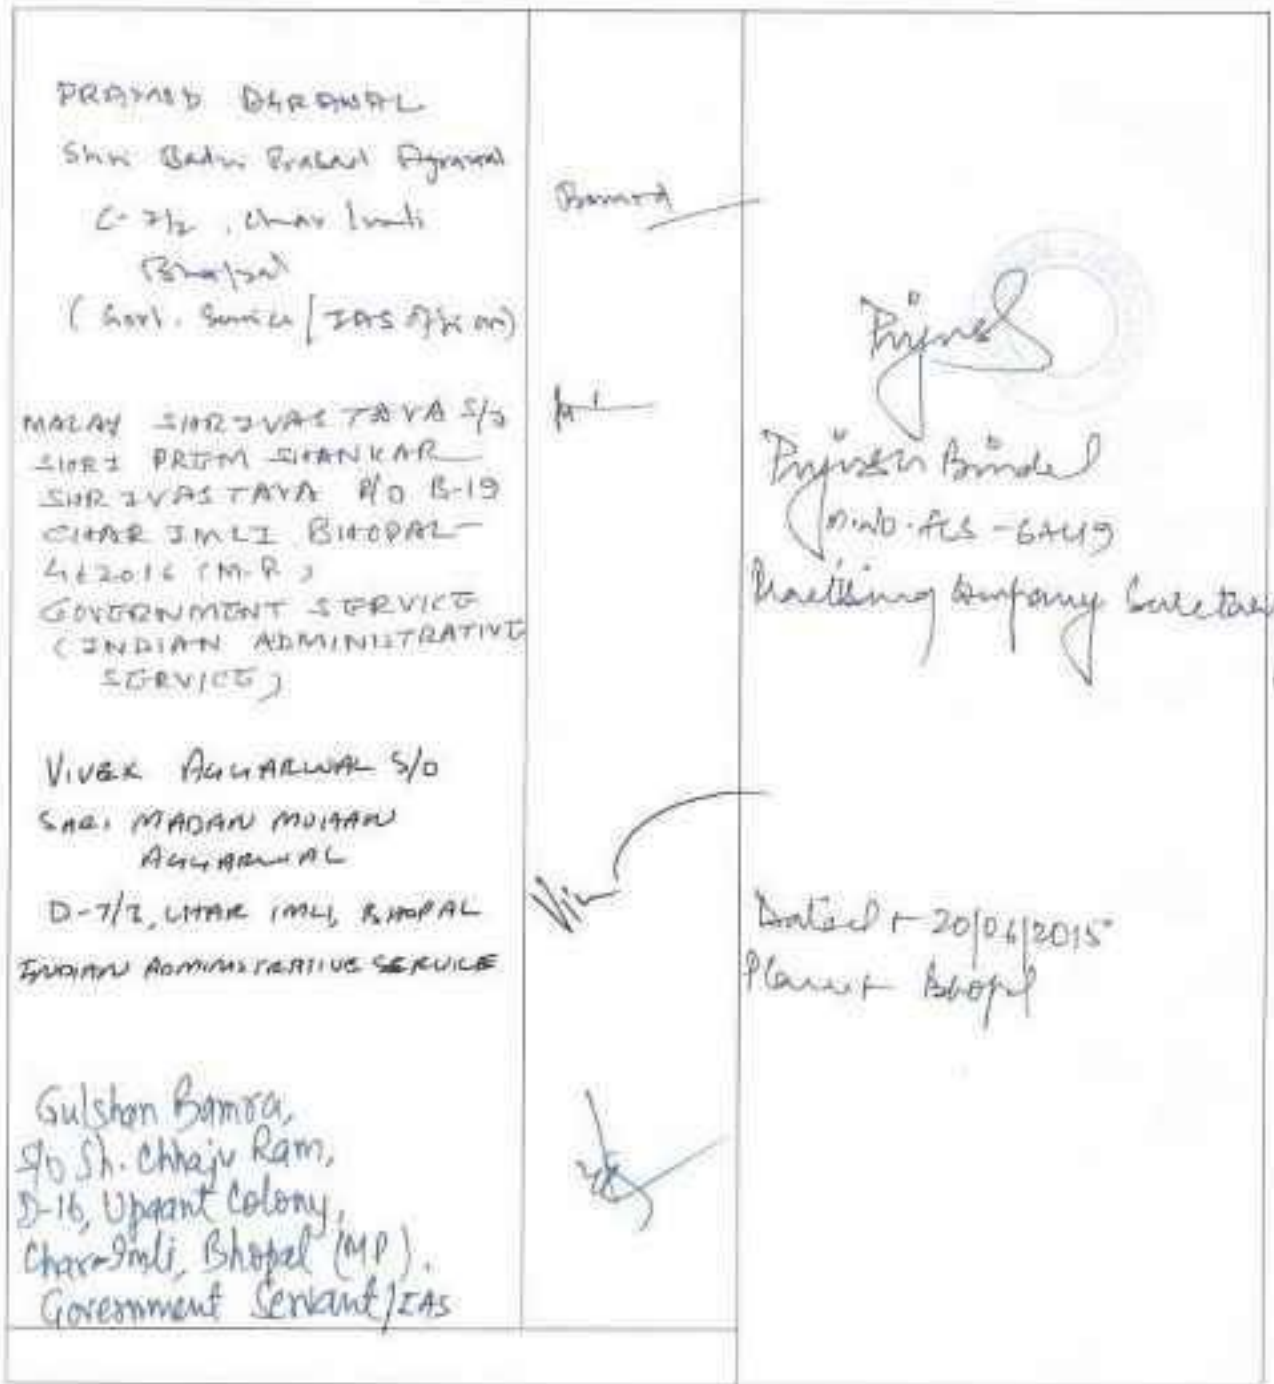 PRAMOD AGRAWAL
Shri Badri Prasad Agrawal
C-7/2, Char Imli
Bhopal
(Govt. Service / IAS Officer)
Pramod
MALAY SHRIVASTAVA S/O
SHRI PREM SHANKAR
SHRIVASTAVA R/O B-19
CHAR IMLI BHOPAL
462016 (M.P.)
GOVERNMENT SERVICE
(INDIAN ADMINISTRATIVE
SERVICE)
VIVEK AGGARWAL S/O
SHRI MADAN MOHAN
AGGARWAL
D-7/2, CHAR IMLI, BHOPAL
INDIAN ADMINISTRATIVE SERVICE
Gulshan Bamra,
S/o Sh. Chhaju Ram,
D-16, Upaant Colony,
Char-Imli, Bhopal (MP).
Government Servant/IAS
Piyush Bindal
M.NO. FCS -
Practising Company Secretary
Dated :- 20/06/2015
Place :- Bhopal